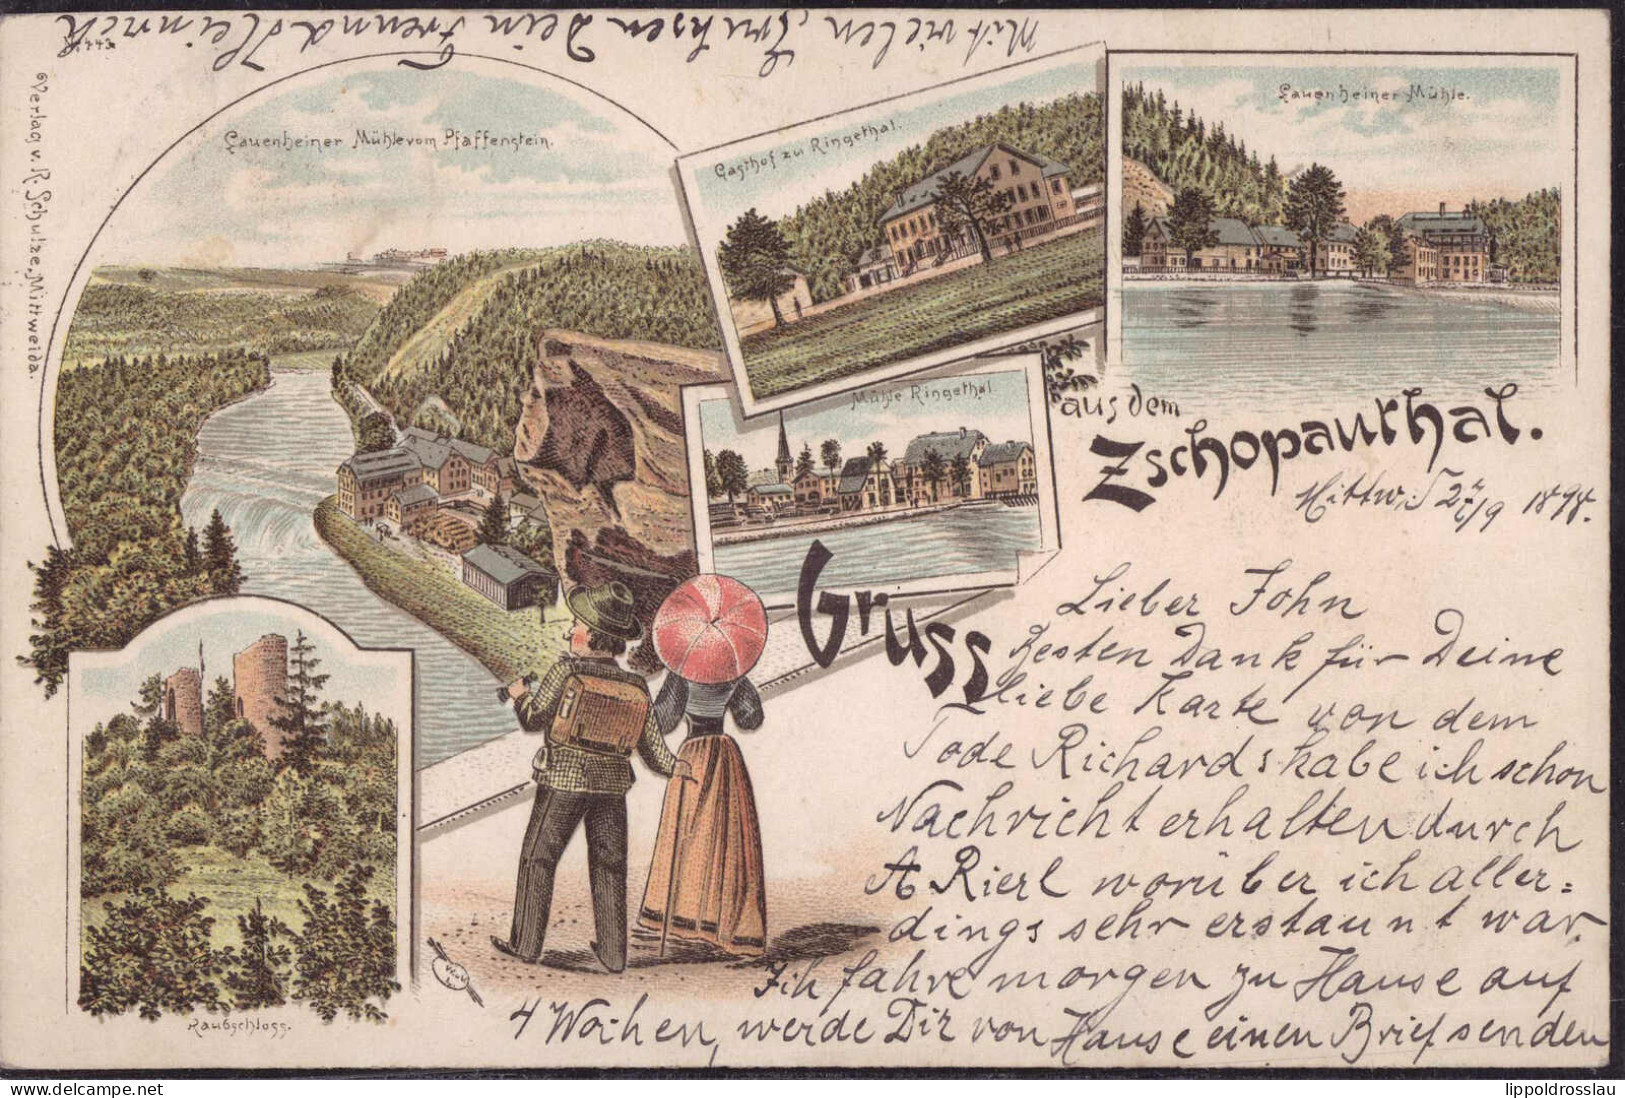 Mit vielen Grühsen Dein Freund Heinrich
No 443.
Verlag v. R. Schulze, Mittweida.
Lauenheiner Mühle vom Pfaffenstein.
Gasthof zu Ringethal.
Lauenheiner Mühle.
Mühle Ringethal
Raubschloss.
Gruss
aus dem
Zschopauthal.
1898.
Lieber John
Besten Dank für Deine
liebe Karte von dem
Tode Richards habe ich schon
Nachricht erhalten durch
A Rierl worüber ich aller=
dings sehr erstaunt war.
Ich fahre morgen zu Hause auf
4 Wochen, werde Dir von Hause einen Brief senden
lippoldrosslau